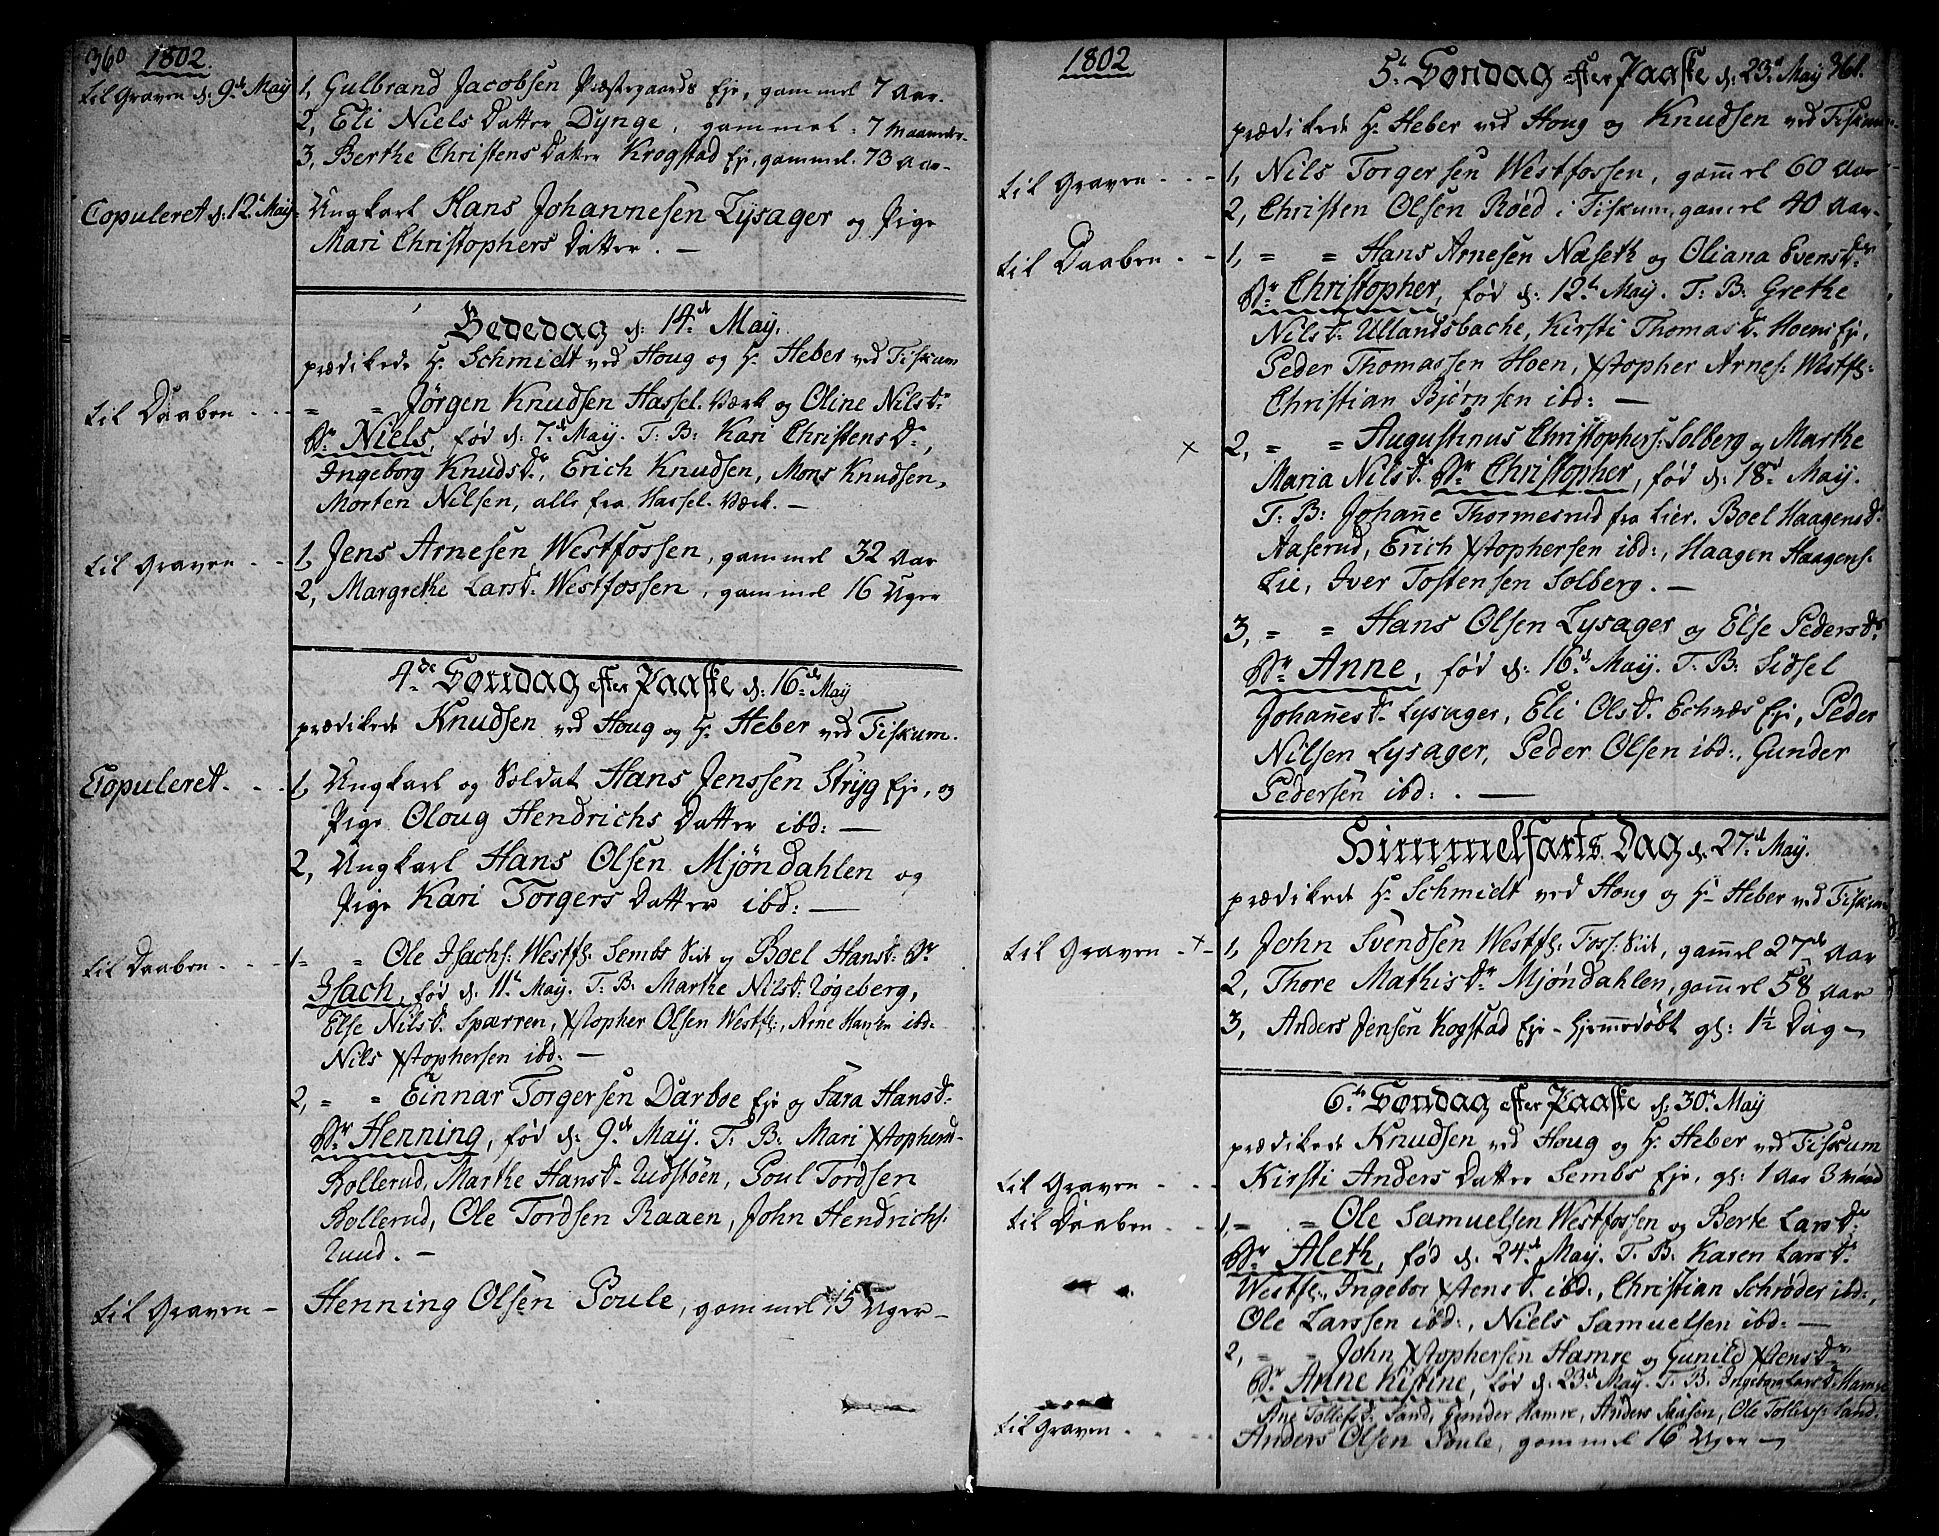 360 1802.
til Graven d: 9de May 1, Gulbrand Jacobsen Præstegaards Eje, gammel 7 Aar.
2, Eli Niels Datter Dynge, gammel: 7 Maaneder.
3, Berthe Christens Datter Krogstad Eje, gammel. 73 Aar-
Copuleret d: 12te May Ungkarl Hans Johannesen Lysager og Pige
Mari Christophers Datter. -
Bededag d: 14de May.
prædikede Hr Schmidt ved Houg og Hr Heber ved Fiskum
til Daaben - - - = = Jørgen Knudsen Hassel. Værk og Oline Nilsdr
Br Niels, fød d: 7de May. T: B: Kari Christensdr,
Ingeborg Knudsdr, Erich Knudsen, Mons Knudsen,
Morten Nilsen, alle fra Hassel. Værk. -
til Graven - - 1, Jens Arnesen Westfossen, gammel 32 Aar
2, Margrethe Larsdr Westfossen, gammel 16 Uger
4de Søndag efter Paaske d: 16de May
prædikede Knudsen ved Houg og Hr Heber ved Fiskum.
Copuleret. - - 1, Ungkarl og Soldat Hans Jenssen Stryg Eje, og
Pige Oloug Hendrichs Datter ibd: -
2, Ungkarl Hans Olsen Mjøndahlen og
Pige Kari Torgers Datter ibd: -
til Daaben - - - 1= = Ole Isachs: Westf: Sembs Side og Boel Hansd: Br
Isach, fød d: 11te May. T: B: Marthe Nilsd: Løgeberg,
Else Nilsd: Sparren, Xstopher Olsen Westf:, Arne Hansen ibd:
Nils Xstophersen ibd: -
2, = = Einnar Torgersen Darboe Eje og Sara Hansd:
Br Henning, fød d: 9de May. T: B: Mari Xstophersd:
Bollerud, Marthe Hansd: Udstøen, Poul Tordsen
Bollerud, Ole Tordsen Raaen, John Hendrichs:
Ruud. -
til Graven - Henning Olsen Poule, gammel 15 Uger -
1802
5te Søndag efter Paaske d: 23de May 361.
prædikede Hr Heber ved Houg og Knudsen ved Fiskum
til Graven - - - 1, Nils Torgersen Westfossen, gamel 60 Aar
2, Christen Olsen Røed i Fiskum, gamel 40 Aar-
til Daaben - - 1, = = Hans Arnesen Naseth og Oliana Evensdr
Br Christopher, fød d: 12te May. T: B: Grethe
Nilsd: Ullandsbache, Kirsti Thomasd: Hoens Eje,
Peder Thomassen Hoen, Xstopher Arnes: Westf:
Christian Bjørnsen ibd: -
x 2, = = Augustinus Christophers: Solberg og Marthe
Maria Nilsd: Br Christopher, fød d: 18de May.
T: B: Johane Thormesrud fra Lier. Boel Haagensd:
Aaserud, Erich Xstophersen ibd:, Haagen Haagens:
Lie, Iver Tostensen Solberg. -
3, = = Hans Olsen Lysager og Else Pedersdr
Br Anne, fød d: 16de May. T: B: Sidsel
Johanesd: Lysager, Eli Olsd: Echnæs Eje, Peder
Nilsen Lysager, Peder Olsen ibd:, Gunder
Pedersen ibd: . -
Himmelfarts Dag d: 27de May.
prædikede Hr Schmidt ved Houg og Hr Heber ved Fiskum
til Graven - x - 1, John Svendsen Westf: Foss: Sid, gamel 27de Aar
2, Thore Mathisdr Mjøndahlen, gamel 58 Aar
3, Anders Jensen Kogstad Eje - hjemmedøbt gl: 1½ Dag -
6te Søndag efter Paaske d: 30te May
prædikede Knudsen ved Houg og Hr Heber ved Fiskum
til Graven - - - Kirsti Anders Datter Sembs Eje, gl: 1 Aar 3 maaned
til Daaben - - - 1, = = Ole Samuelsen Westfossen og Berte Larsdr
Br Aleth, fød d: 24de May. T: B: Karen Larsdr
Westf:, Ingebor Xstensd: ibd:, Christian Schrøder ibd:,
Ole Larssen ibd:, Niels Samuelsen ibd: -
2, = = John Xstophersen Hamre og Gunild Xstensdr
Br Anne Kistine, fød d: 23de May. T: B: Ingeborg Larsd: Hamre
Ane Tollefsd: Sand, Gunder Hamre, Anders Olsen, Ole Tollefs: Sand.
til Graven - - - Anders Olsen Poule, gammel 16 Uger -